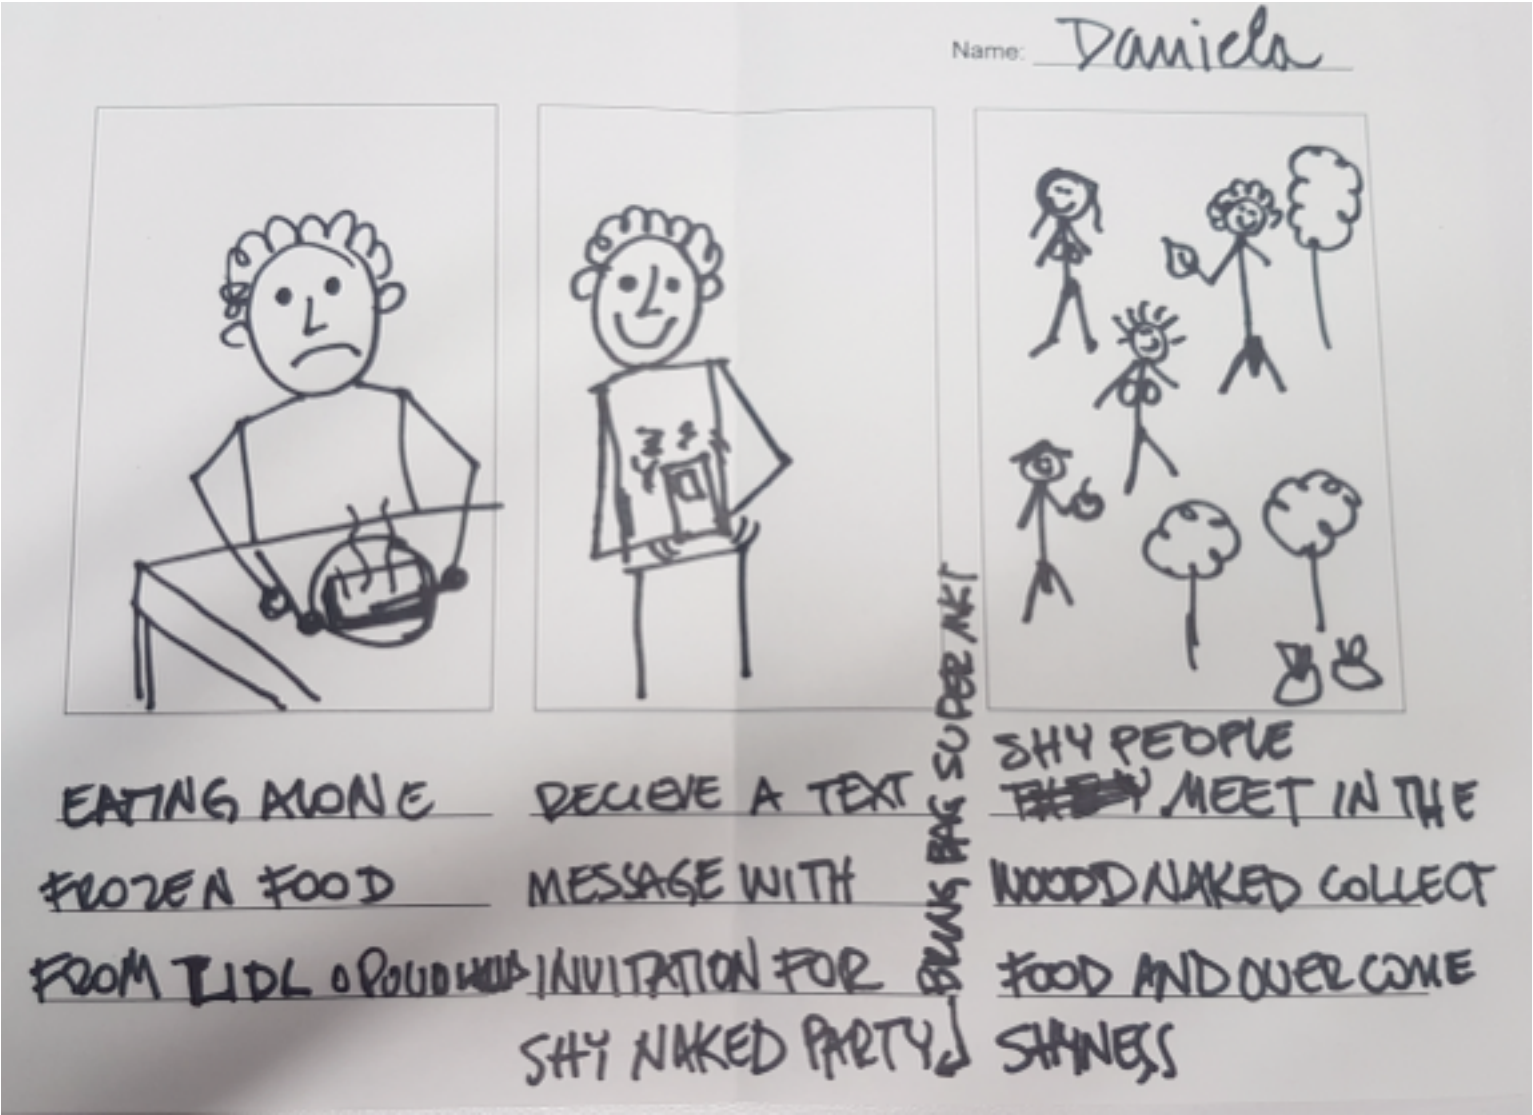 Name: Daniela
EATING ALONE
FROZEN FOOD
FROM LIDL
RECIEVE A TEXT
MESSAGE WITH
INVITATION FOR
SHY NAKED PARTY
BRING BAG SUPER MKT
SHY PEOPLE
MEET IN THE
WOODD NAKED COLLECT
FOOD AND OVER COME
SHYNESS